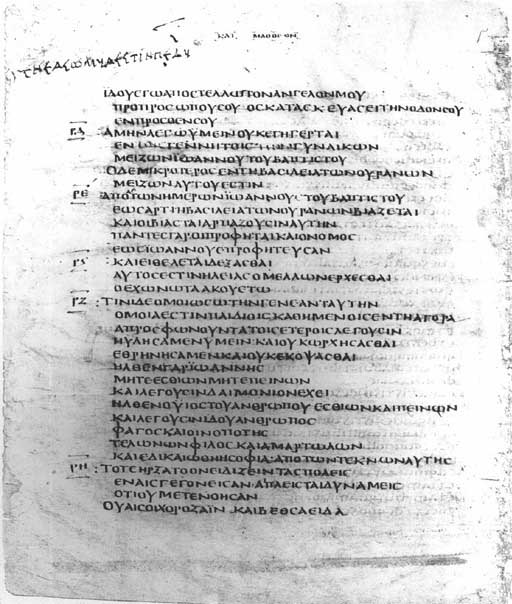 ΚΑΤ ΜΑΘΘΕΟΝ
ΙΔΟΥ ΕΓΩ ΑΠΟΣΤΕΛΛΩ ΤΟΝ ΑΝΓΕΛΟΝ ΜΟΥ
ΠΡΟ ΠΡΟΣΩΠΟΥ ΣΟΥ ΟΣ ΚΑΤΑΣΚΕΥΑΣΕΙ ΤΗΝ ΟΔΟΝ ΣΟΥ
ΕΝΠΡΟΣΘΕΝ ΣΟΥ
ΡΔ ΑΜΗΝ ΛΕΓΩ ΥΜΕΙΝ ΟΥΚ ΕΓΗΓΕΡΤΑΙ
ΕΝ ΤΟΙΣ ΓΕΝΝΗΤΟΙΣ ΤΩΝ ΓΥΝΑΙΚΩΝ
ΜΕΙΖΩΝ ΙΩΑΝΝΟΥ ΤΟΥ ΒΑΠΤΙΣΤΟΥ
Ο ΔΕ ΜΙΚΡΟΤΕΡΟΣ ΕΝ ΤΗ ΒΑΣΙΛΕΙΑ ΤΩΝ ΟΥΡΑΝΩΝ
ΜΕΙΖΩΝ ΑΥΤΟΥ ΕΣΤΙΝ
ΡΕ ΑΠΟ ΤΩΝ ΗΜΕΡΩΝ ΙΩΑΝΝΟΥΣ ΤΟΥ ΒΑΠΤΙΣΤΟΥ
ΕΩΣ ΑΡΤΙ Η ΒΑΣΙΛΕΙΑ ΤΩΝ ΟΥΡΑΝΩΝ ΒΙΑΖΕΤΑΙ
ΚΑΙ ΟΙ ΒΙΑΣΤΑΙ ΑΡΠΑΖΟΥΣΙΝ ΑΥΤΗΝ
ΠΑΝΤΕΣ ΓΑΡ ΟΙ ΠΡΟΦΗΤΑΙ ΚΑΙ Ο ΝΟΜΟΣ
ΕΩΣ ΙΩΑΝΝΟΥ ΕΠΡΟΦΗΤΕΥΣΑΝ
ΡϚ : ΚΑΙ ΕΙ ΘΕΛΕΤΑΙ ΔΕΞΑΣΘΑΙ
ΑΥΤΟΣ ΕΣΤΙΝ ΗΛΕΙΑΣ Ο ΜΕΛΛΩΝ ΕΡΧΕΣΘΑΙ
Ο ΕΧΩΝ ΩΤΑ ΑΚΟΥΕΤΩ
ΡΖ : ΤΙΝΙ ΔΕ ΟΜΟΙΩΣΩ ΤΗΝ ΓΕΝΕΑΝ ΤΑΥΤΗΝ
ΟΜΟΙΑ ΕΣΤΙΝ ΠΑΙΔΙΟΙΣ ΚΑΘΗΜΕΝΟΙΣ ΕΝ ΤΗ ΑΓΟΡΑ
Α ΠΡΟΣΦΩΝΟΥΝΤΑ ΤΟΙΣ ΕΤΕΡΟΙΣ ΛΕΓΟΥΣΙΝ
ΗΥΛΗΣΑΜΕΝ ΥΜΕΙΝ ΚΑΙ ΟΥΚ ΩΡΧΗΣΑΣΘΑΙ
ΕΘΡΗΝΗΣΑΜΕΝ ΚΑΙ ΟΥΚ ΕΚΟΨΑΣΘΑΙ
ΗΛΘΕΝ ΓΑΡ ΙΩΑΝΝΗΣ
ΜΗΤΕ ΕΣΘΙΩΝ ΜΗΤΕ ΠΕΙΝΩΝ
ΚΑΙ ΛΕΓΟΥΣΙΝ ΔΑΙΜΟΝΙΟΝ ΕΧΕΙ
ΗΛΘΕΝ Ο ΥΙΟΣ ΤΟΥ ΑΝΘΡΩΠΟΥ ΕΣΘΙΩΝ ΚΑΙ ΠΕΙΝΩΝ
ΚΑΙ ΛΕΓΟΥΣΙΝ ΙΔΟΥ ΑΝΘΡΩΠΟΣ
ΦΑΓΟΣ ΚΑΙ ΟΙΝΟΠΟΤΗΣ
ΤΕΛΩΝΩΝ ΦΙΛΟΣ ΚΑΙ ΑΜΑΡΤΩΛΩΝ
ΚΑΙ ΕΔΙΚΑΙΩΘΗ Η ΣΟΦΙΑ ΑΠΟ ΤΩΝ ΤΕΚΝΩΝ ΑΥΤΗΣ
ΡΗ : ΤΟΤΕ ΗΡΞΑΤΟ ΟΝΕΙΔΙΖΕΙΝ ΤΑΣ ΠΟΛΕΙΣ
ΕΝ ΑΙΣ ΓΕΓΟΝΕΙΣΑΝ ΑΙ ΠΛΕΙΣΤΑΙ ΔΥΝΑΜΕΙΣ
ΟΤΙ ΟΥ ΜΕΤΕΝΟΗΣΑΝ
ΟΥΑΙ ΣΟΙ ΧΟΡΟΖΑΙΝ ΚΑΙ ΒΕΘΣΑΕΙΔΑ